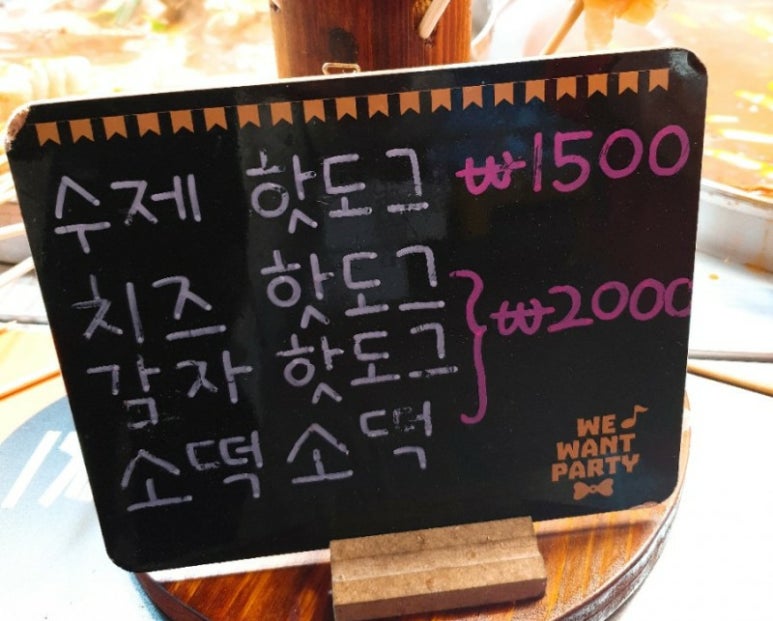 수제 핫도그 ₩1500
치즈 핫도그
감자 핫도그 } ₩2000
소떡 소떡
WE
WANT
PARTY